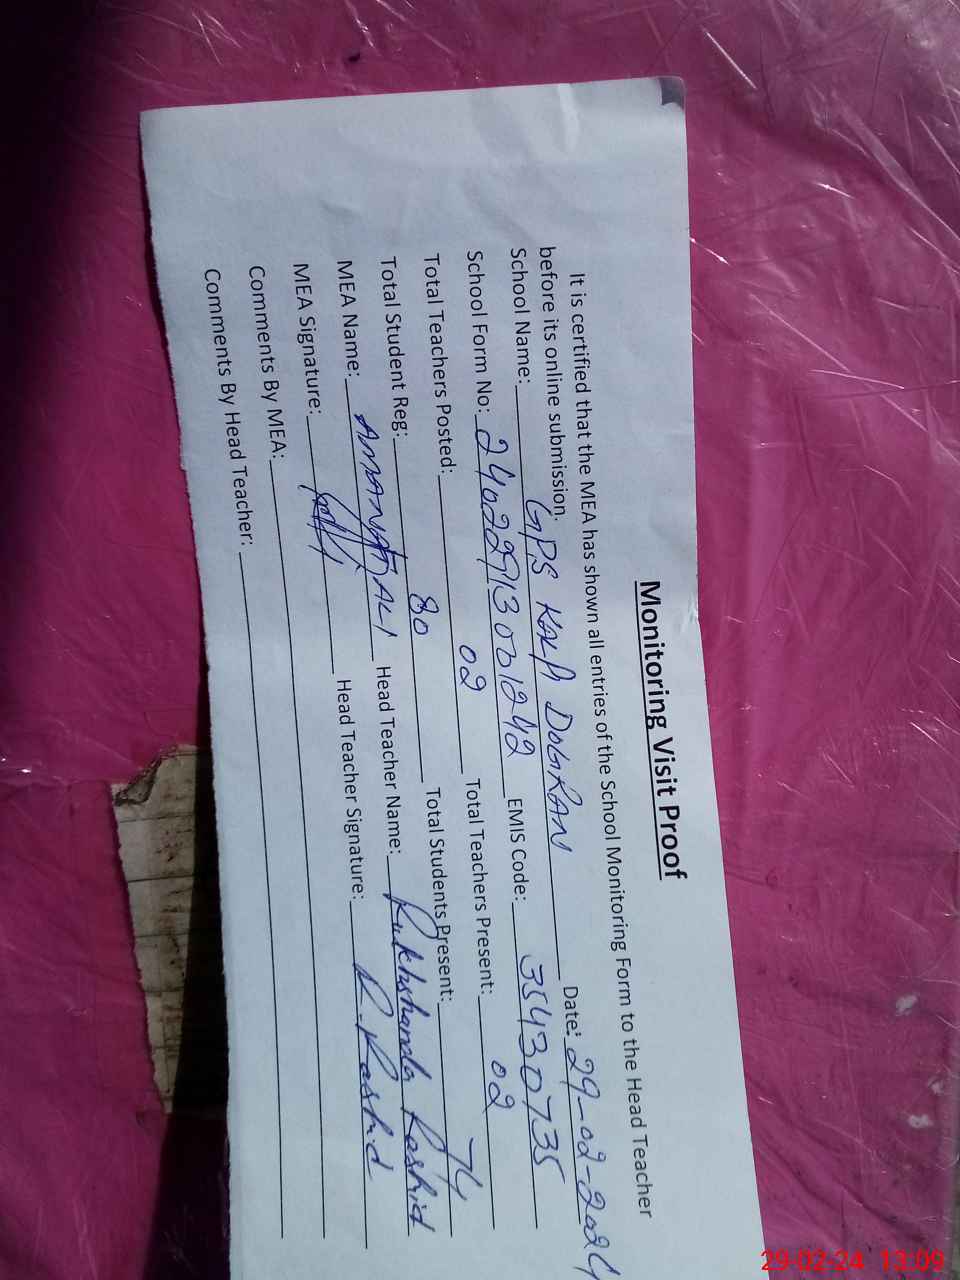 Monitoring Visit Proof
It is certified that the MEA has shown all entries of the School Monitoring Form to the Head Teacher
before its online submission.
School Name: GPS KALA DOGRAN Date: 29-02-2024
School Form No: EMIS Code: 35430735
Total Teachers Posted: 02 Total Teachers Present: 02
Total Student Reg: 80 Total Students Present: 74
MEA Name: AMANAT ALI Head Teacher Name: Rukhshanda Rashid
MEA Signature: Head Teacher Signature: R. Rashid
Comments By MEA:
Comments By Head Teacher:
29-02-24 13:09